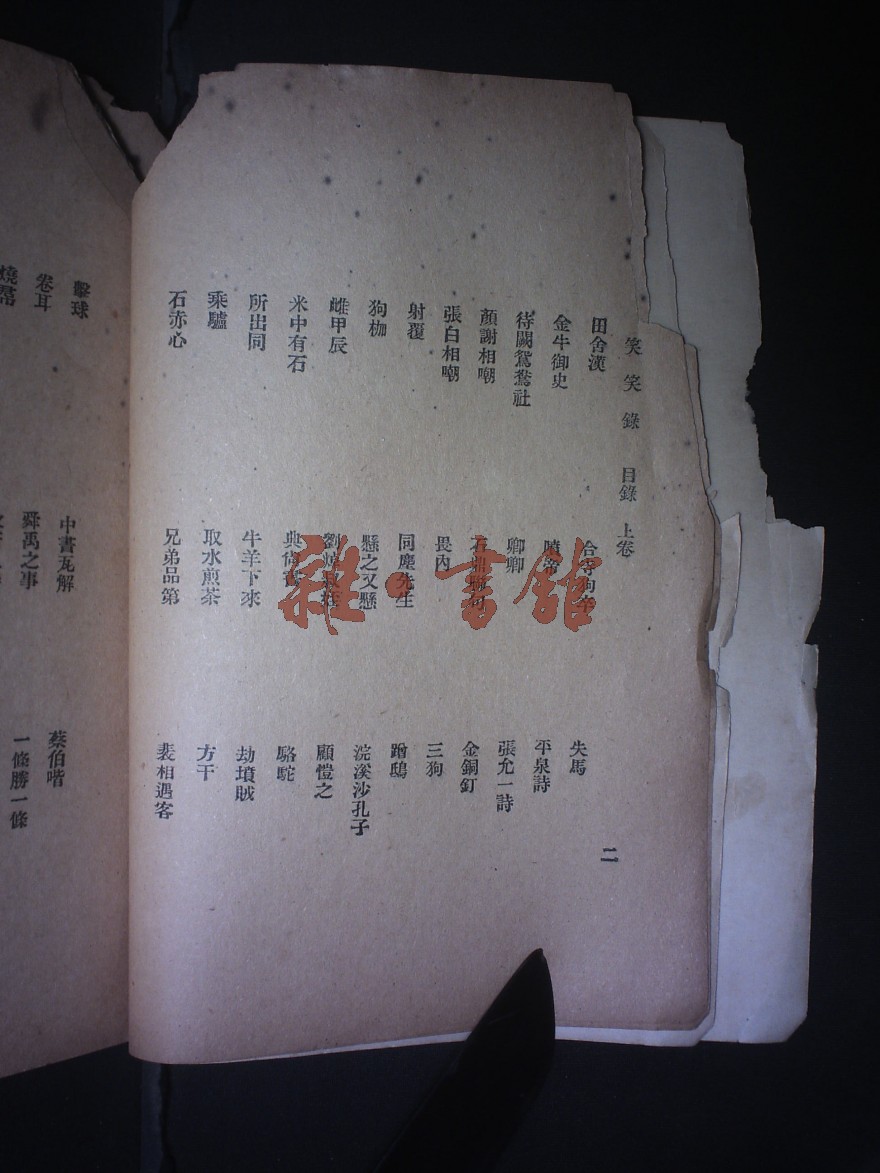 笑笑錄 目錄 上卷
二
田舍漢
失馬
金牛御史
噴帝
平泉詩
待闕鴛鴦社
卿卿
張允一詩
顏謝相嘲
金銅釘
張白相嘲
畏內
三狗
射覆
同塵先生
蹲鴟
狗枷
懸之又懸
浣溪沙孔子
雌甲辰
顧愷之
米中有石
典尙書
駱駝
所出同
牛羊下來
劫墳賊
乘驢
取水煎茶
方干
石赤心
兄弟品第
裴相遇客
擊球
中書瓦解
蔡伯喈
卷耳
舜禹之事
一條勝一條
雜·書館